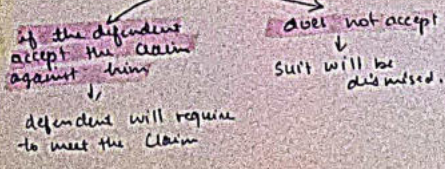 if the difendent
accept the claim
against him
defendent will require
to meet the Claim
does not accept
suit will be
dismised.